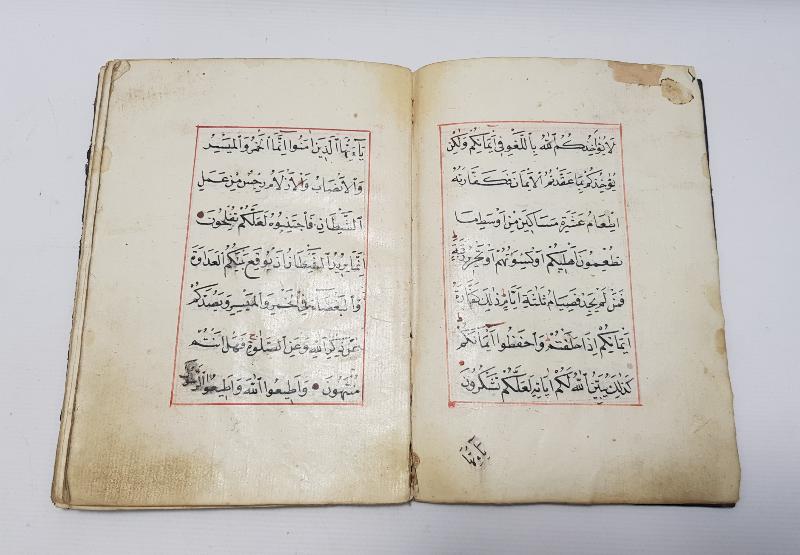 لَا يُؤَاخِذُكُمُ اللّٰهُ بِاللَّغْوِ فِي اَيْمَانِكُمْ وَلٰكِنْ
يُؤَاخِذُكُمْ بِمَا عَقَّدْتُمُ الْاَيْمَانَ فَكَفَّارَتُهُ
اِطْعَامُ عَشَرَةِ مَسَاكِينَ مِنْ اَوْسَطِ مَا
تُطْعِمُونَ اَهْلِيكُمْ اَوْ كِسْوَتُهُمْ اَوْ تَحْرِيرُ رَقَبَةٍ
فَمَنْ لَمْ يَجِدْ فَصِيَامُ ثَلٰثَةِ اَيَّامٍ ذٰلِكَ كَفَّارَةُ
اَيْمَانِكُمْ اِذَا حَلَفْتُمْ وَاحْفَظُوا اَيْمَانَكُمْ
كَذٰلِكَ يُبَيِّنُ اللّٰهُ لَكُمْ اٰيَاتِهِ لَعَلَّكُمْ تَشْكُرُونَ
يَاۤءَيُّهَا الَّذِينَ اٰمَنُوا اِنَّمَا الْخَمْرُ وَالْمَيْسِرُ
وَالْاَنْصَابُ وَالْاَزْلَامُ رِجْسٌ مِنْ عَمَلِ
الشَّيْطَانِ فَاجْتَنِبُوهُ لَعَلَّكُمْ تُفْلِحُونَ
اِنَّمَا يُرِيدُ الشَّيْطَانُ اَنْ يُوقِعَ بَيْنَكُمُ الْعَدَاوَةَ
وَالْبَغْضَاۤءَ فِي الْخَمْرِ وَالْمَيْسِرِ وَيَصُدَّكُمْ
عَنْ ذِكْرِ اللّٰهِ وَعَنِ الصَّلٰوةِ فَهَلْ اَنْتُمْ
مُنْتَهُونَ وَاَطِيعُوا اللّٰهَ وَاَطِيعُوا الرَّسُولَ